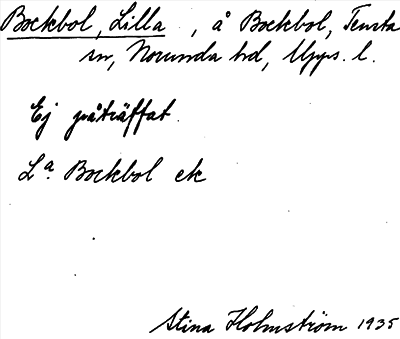 Bockbol, Lilla , å Bockbol, Tensta
sn, Norunda hd, Upps. l.
Ej påträffat.
La. Bockbol ek
Stina Holmström 1935